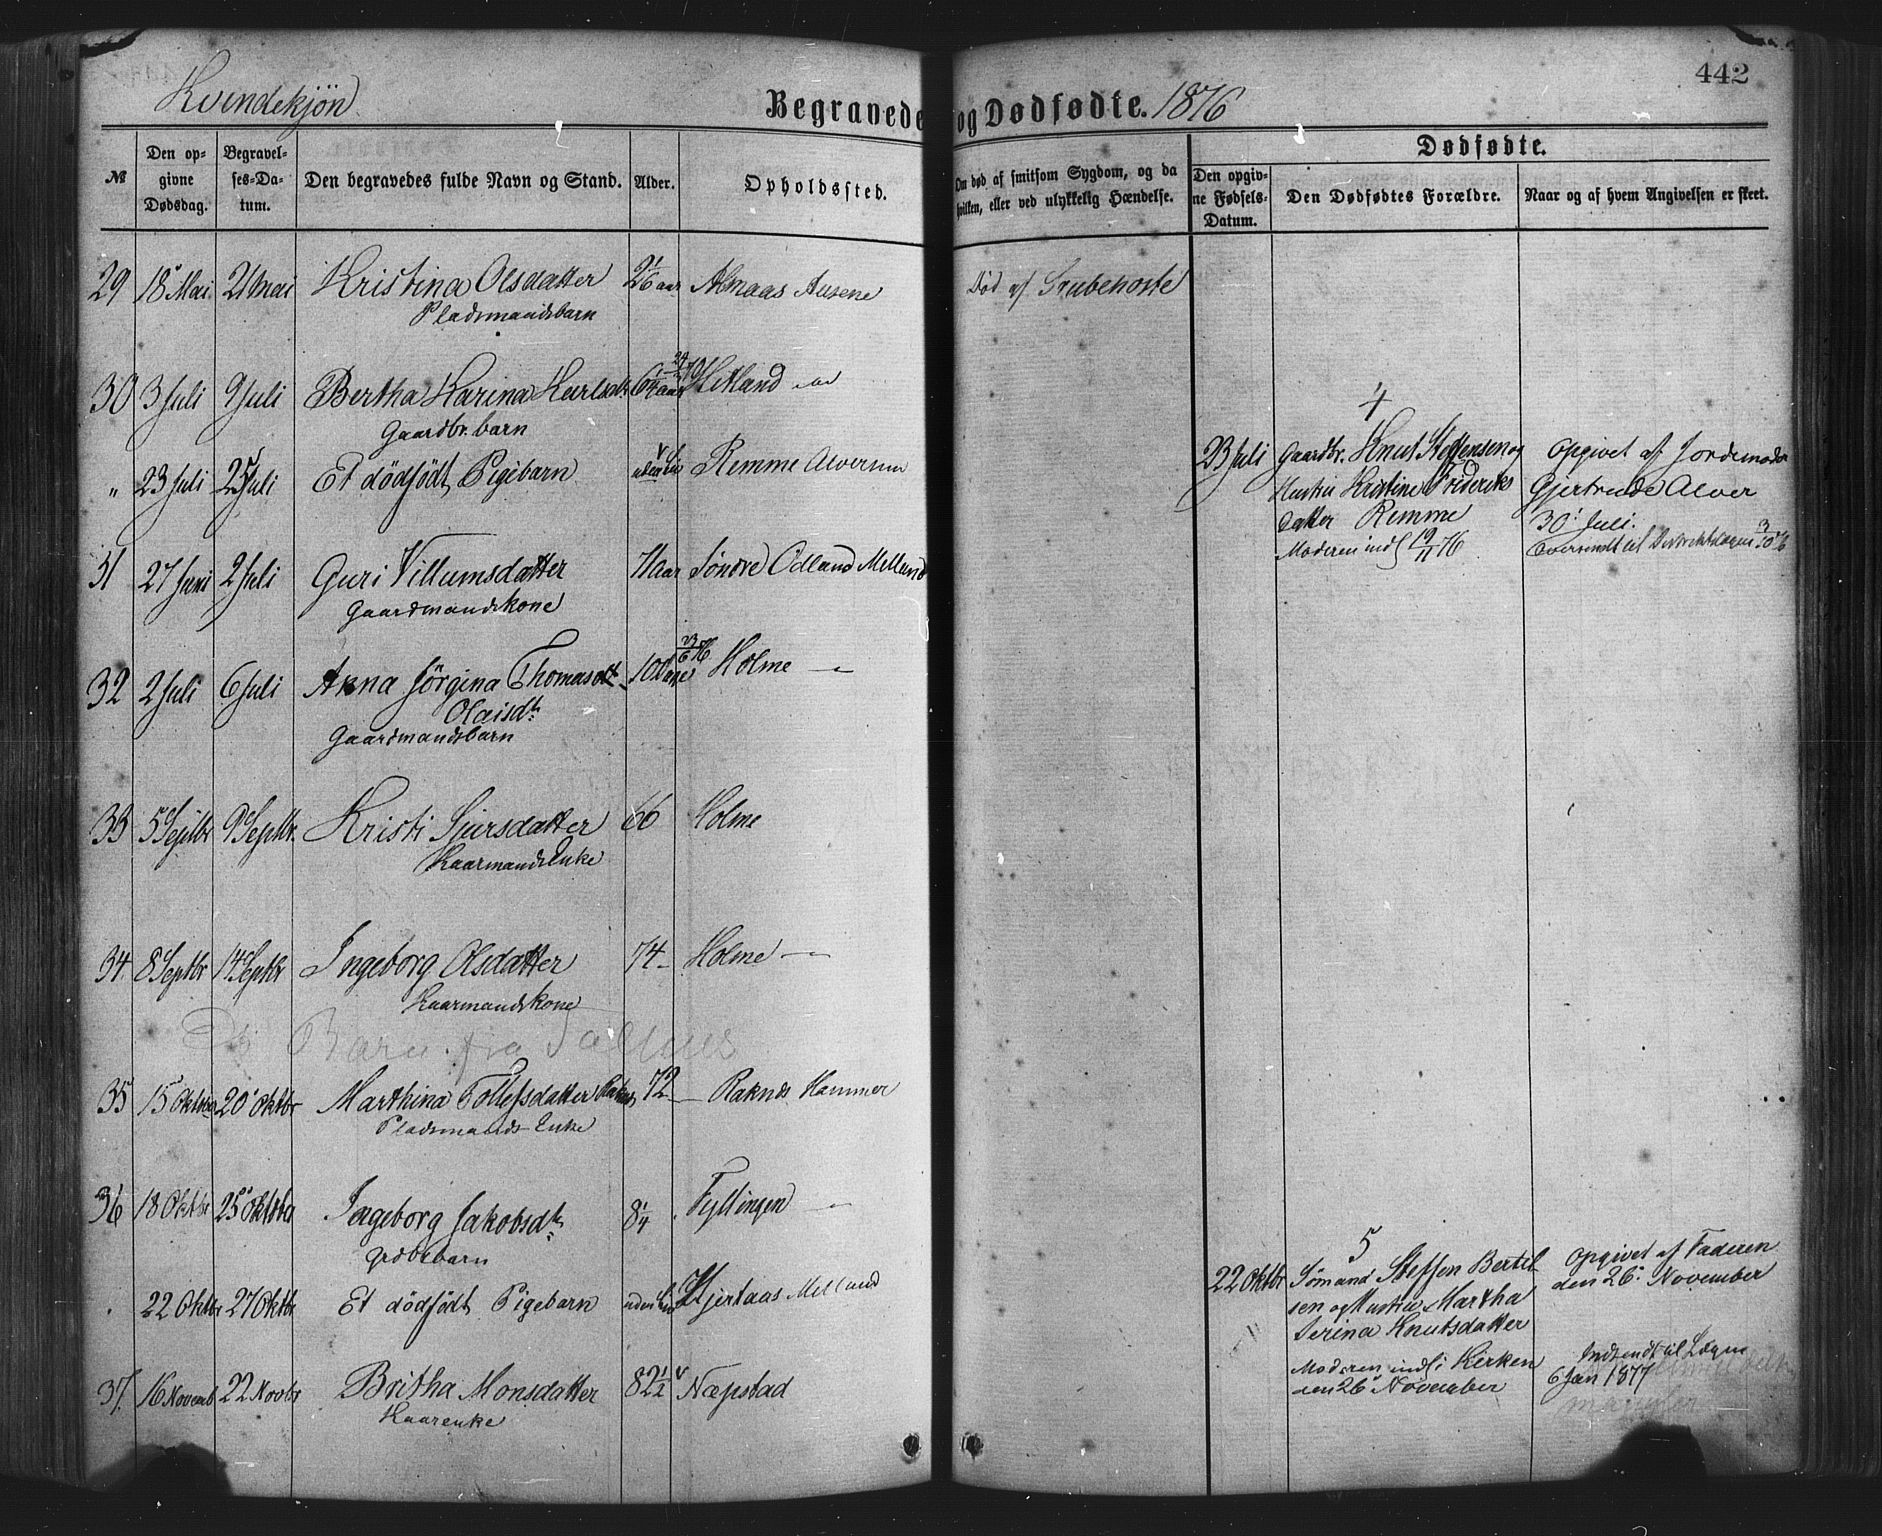 442
Kvindekjøn
Begravede og Dødfødte. 1876
№
Den opgivne Dødsdag.
Begravelses-Datum.
Den begravedes fulde Navn og Stand.
Alder.
Opholdssted.
Om død af smitsom Sygdom, og da hvilken, eller ved ulykkelig Hændelse.
Dødfødte.
Den opgivne Fødsels-Datum.
Den Dødfødtes Forældre.
Naar og af hvem Angivelsen er skeet.
29 18 Mai 21 Mai Kristina Olsdatter 2 1/6 aar Almaas Ausene Død af Strubehoste
Pladsmandsbarn
30 3 Juli 9 Juli Bertha Karina Karlsdt. Hitland
Gaardbr. barn
" 23 Juli 25 Juli Et dödfödt Pigebarn uden Liv Remme Alversun
4
23 Juli Gaardbr. Knut Steffensen og
Hustru Kristine Frideriks
datter Remme
Moderen indl 19/11 76
Opgivet af Jordemoder
Gjertrude Alver
30 Juli.
Oversendt til Distriktslægen 3/10 76
31 27 Juni 2 Juli Guri Villumsdatter 71 aar Søndre Odland Melland
Gaardmandskone
32 2 Juli 6 Juli Anna Jörgina Thomasdt. 10 Dage 23/6 76 Holme —
Olaisdt.
Gaardmandsbarn
33 5 Septbr 9 Septbr. Kristi Sjursdatter 66 Holme
Kaarmands Enke
34 8 Septbr 14 Septbr Ingeborg Olsdatter 74 - Holme —
Kaarmandskone
Barn fra
35 15 Oktbr 20 Oktbr Marthina Tollefsdatter Raknes 72 - Raknes Hammer
Pladsmands Enke
36 18 Oktbr 25 Oktbr Ingeborg Jakobsdt. 8 1/4 Fyllingen —
22 Oktbr 27 Oktbr Et dödfödt Pigebarn uden Liv Hjertaas Melland
5
22 Oktbr Sömand Steffen Bertel
sen og Hustru Martha
Serina Knutsdatter
Moderen indl i Kirken
den 26 November
Opgivet af Faderen
den 26 November
Indsendt til Lægen
6 Jan 1877
mangler
37. 16 Novemb 22 Novbr Britha Monsdatter 82 1/2 Næpstad
Kaarenke